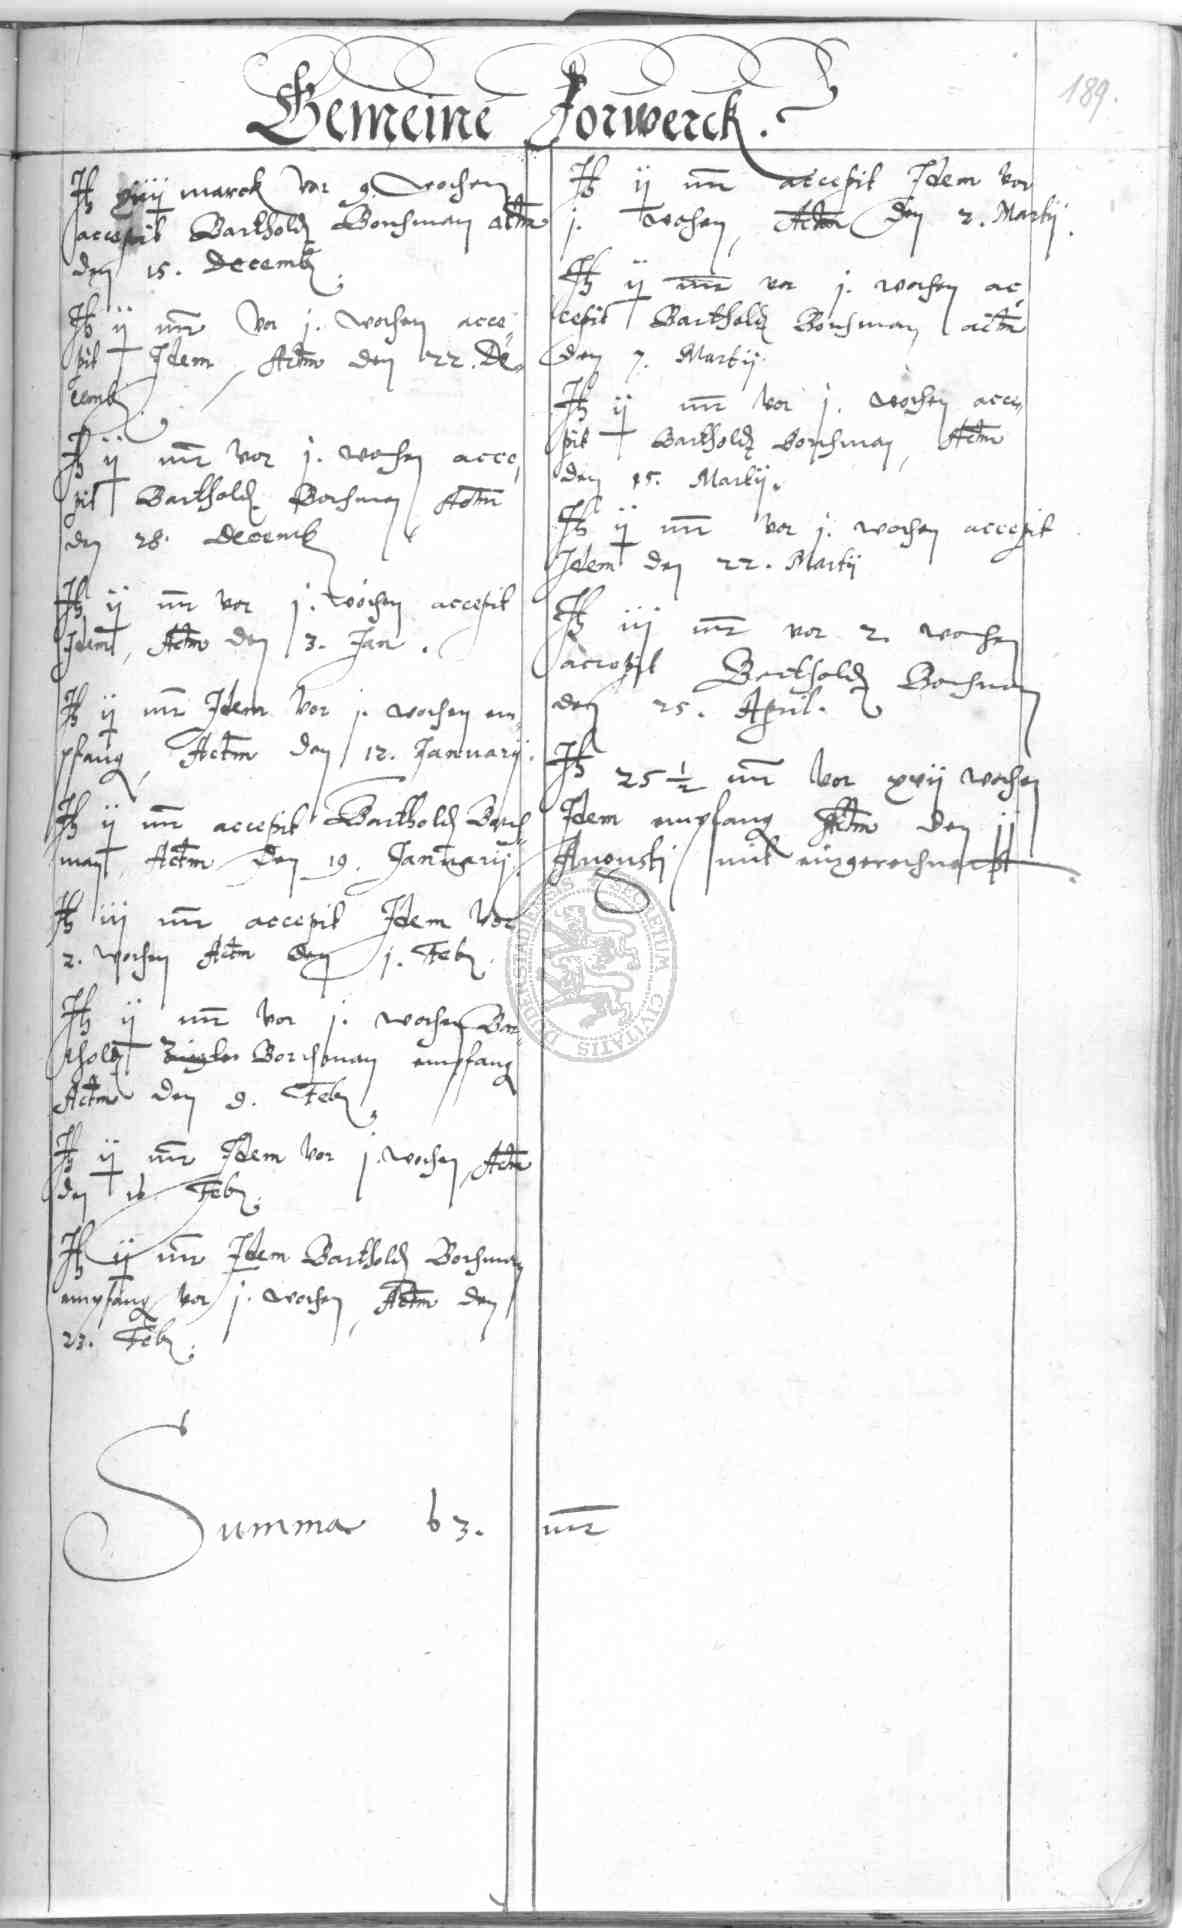 189.
Gemeine Forwerck.
It xiij marck vor 9. wochen
accepit Barthold Borchman actm
den 15. Decemb
It ij mr vor j. wochen acce
pit Idem, Actm den 22. De
cemb
It ij mr vor j. wochen acce
pit Barthold Borchman Actm
den 28. Decemb
It ij mr vor j. wochen accepit
Idem, Actm den 3. Jan.
It ij mr Idem vor j. wochen em
pfang, Actm den 12. Januarij.
It ij mr accepit Barthold Borch
man, Actm den 19. Januarij.
It iij mr accepit Idem vor
2. wochen Actm den j. Feb.
It ij mr vor j. wochen Bar
thold Borchman empfang
Actm den 9. Feb
It ij mr Idem vor j. wochen, Actm
den 16 Feb.
It ij mr Idem Barthold Borchman
empfang vor j. wochen, Actm den
23. Feb.
It ij mr accepit Idem vor
j. wochen, Actm den 2. Martij.
It ij mr vor j. wochen ac
cepit Barthold Borchman actm
den 7. Martij.
It ij mr vor j. wochen acce
pit Barthold Borchman, Actm
den 15. Martij.
It ij mr vor j. wochen accepit
Idem den 22. Martij
It iij mr vor 2. wochen
accepit Barthold Borchman
den 25. April.
It 25 1/2 mr vor xvij wochen
Idem empfang Actm den jj
Augusti mit eingerechnet
Summa 63. mr
SECRETUM CIVITATIS DUDERSTADIENSIS